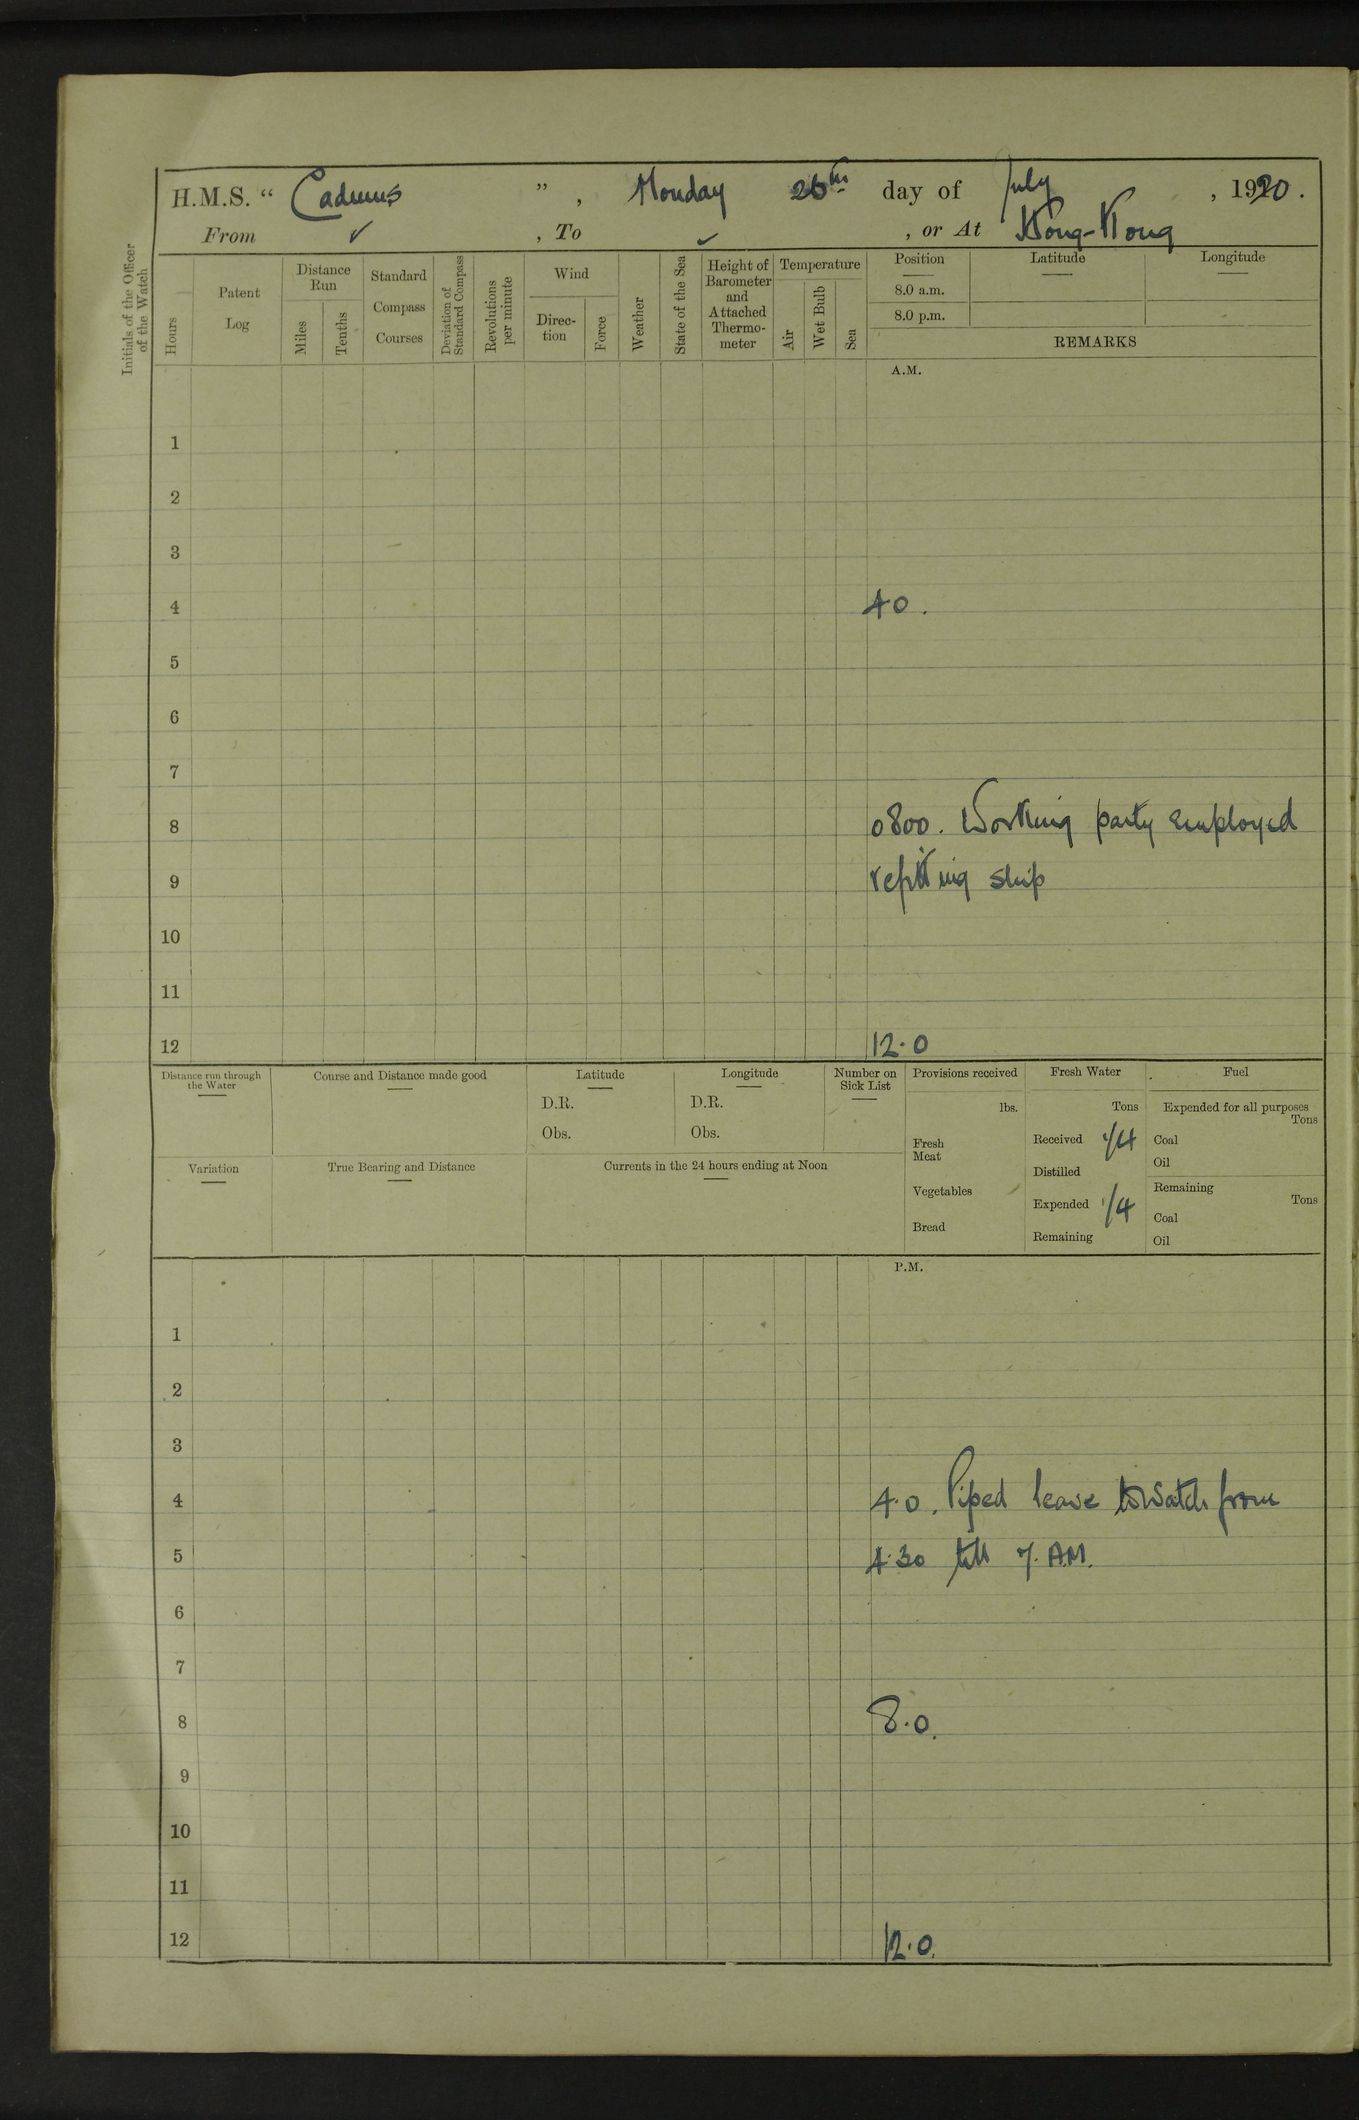 H.M.S. “ Cadmus ”, Monday 26th day of July, 1920.
From ✓, To ✓, or At Hong-Kong
Initials of the Officer of the Watch
Hours
Patent Log
Distance Run
Miles
Tenths
Standard Compass Courses
Deviation of Standard Compass
Revolutions per minute
Wind
Direc-tion
Force
Weather
State of the Sea
Height of Barometer and Attached Thermo-meter
Temperature
Air
Wet Bulb
Sea
Position Latitude Longitude
8.0 a.m.
8.0 p.m.
REMARKS
A.M.
1
2
3
4 4.0.
5
6
7
8 0800. Working party employed
9 refitting ship
10
11
12 12.0
Distance run through the Water
Course and Distance made good
Latitude
D.R.
Obs.
Longitude
D.R.
Obs.
Number on Sick List
Provisions received
lbs.
Fresh Meat
Vegetables
Bread
Fresh Water
Tons
Received 1/4
Distilled
Expended 1/4
Remaining
Fuel
Expended for all purposes
Tons
Coal
Oil
Remaining
Tons
Coal
Oil
Variation
True Bearing and Distance
Currents in the 24 hours ending at Noon
P.M.
1
2
3
4 4.0. Piped leave to watch from
5 4.30 till 7. A.M.
6
7
8 8.0.
9
10
11
12 12.0.